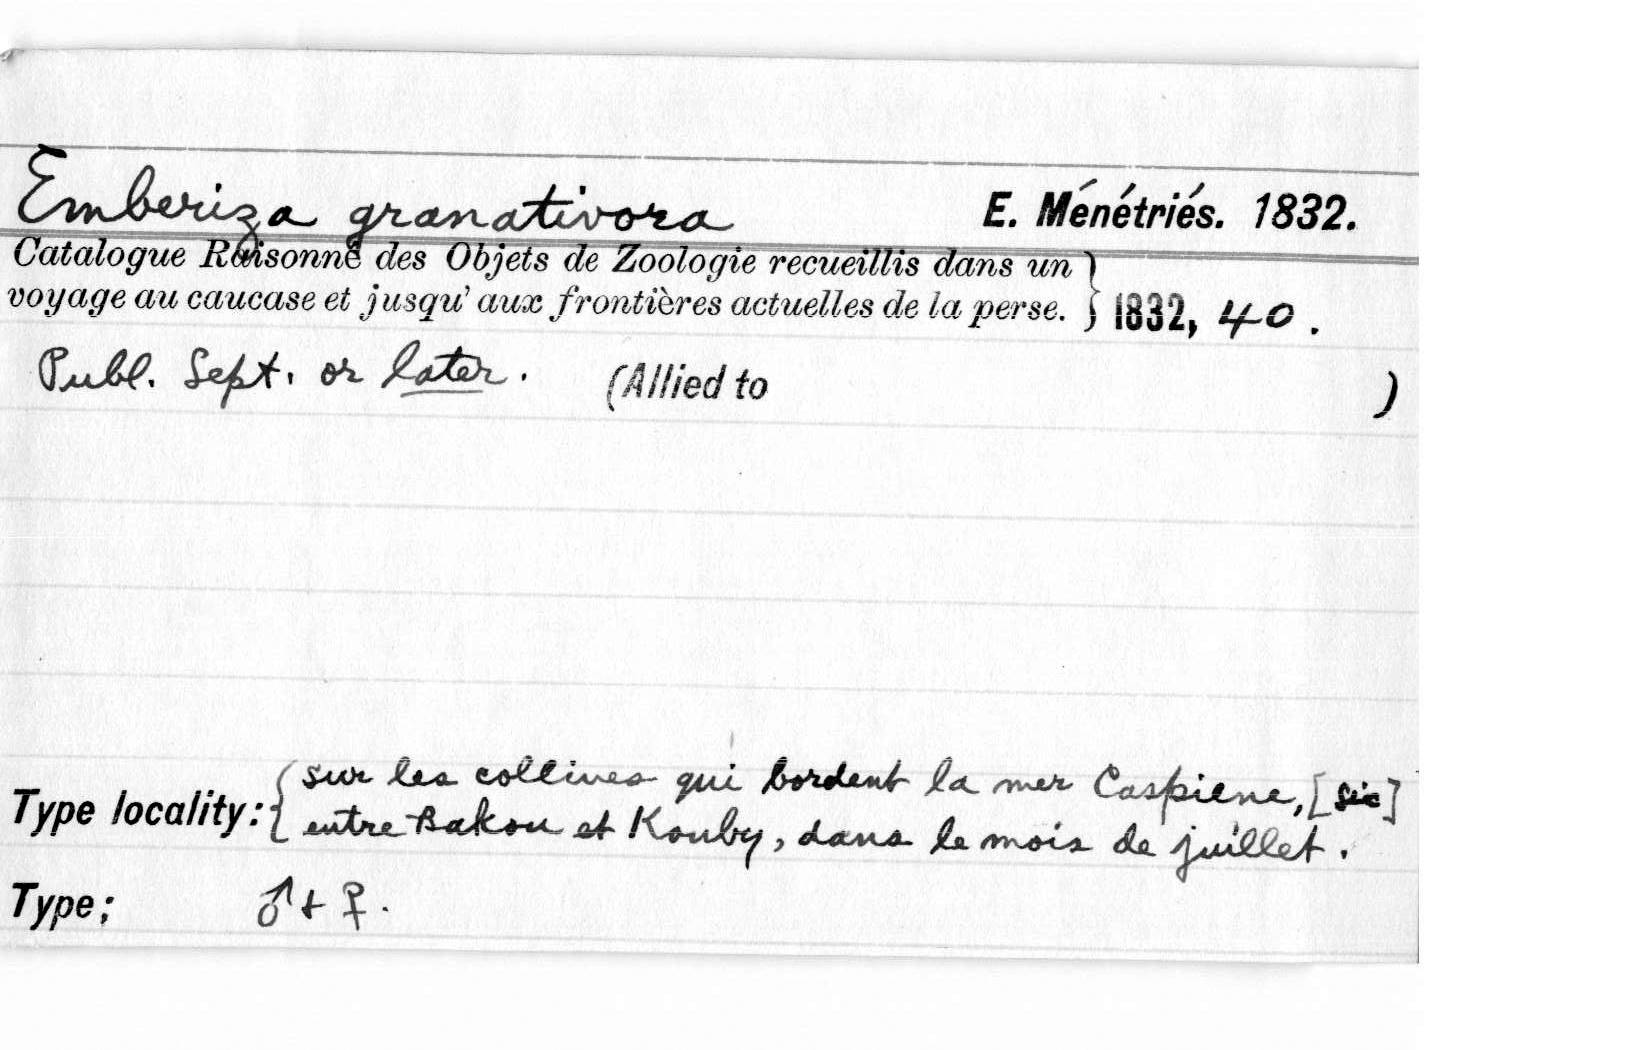 Emberiza granativora E. Ménétriés. 1832.
Catalogue Raisonné des Objets de Zoologie recueillis dans un
voyage au caucase et jusqu' aux frontières actuelles de la perse. } 1832, 40.
Publ. Sept. or later. (Allied to )
Type locality: { sur les collines qui bordent la mer Caspiene, [sic]
entre Bakou et Kouby, dans le mois de juillet.
Type; ♂ + ♀.